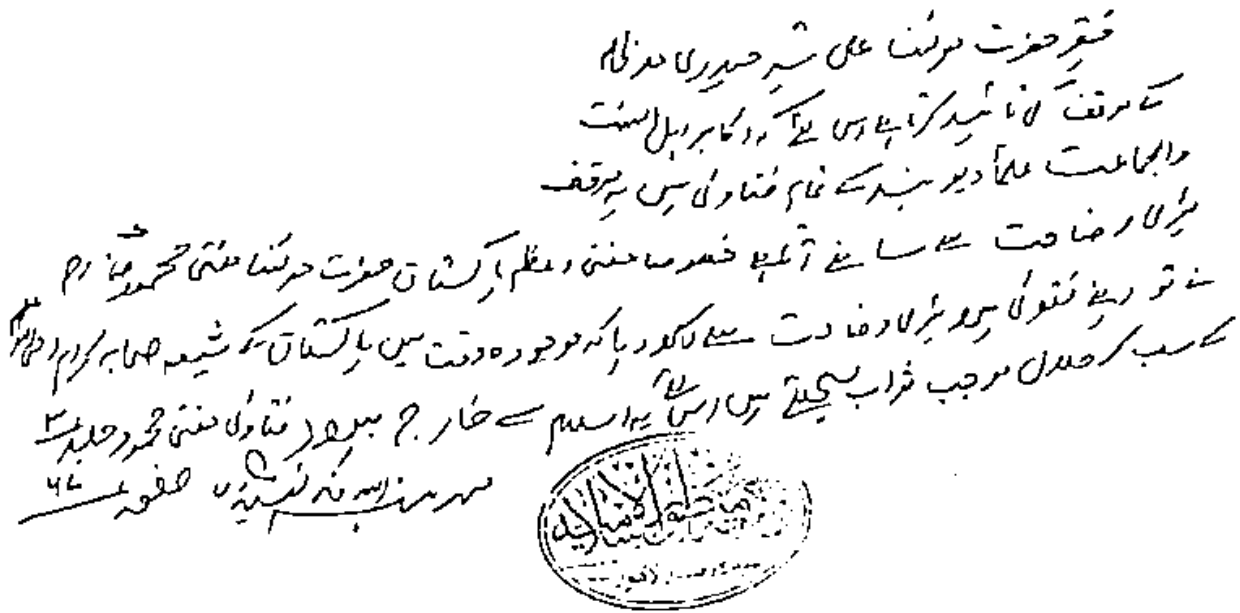 فقیر حضرت مولٰنا علی شیر حیدری مدظلہ
کے موقف کی تائید کرتا ہے اس لئے کہ اکابر اہل سنت
والجماعت علمأ دیوبند کے تمام فتاویٰ میں یہ موقف
بڑی وضاحت سے سامنے آتا ہے خصوصا مفتی اعظم پاکستان حضرت مولٰنا مفتی محمود صاحب رح
نے تو اپنے فتویٰ میں بڑی وضاحت سے لکھ دیا کہ موجودہ وقت میں پاکستان کے شیعہ صحابہ کرام
کے سب کو حلال موجب ثواب سمجھتے ہیں اس لئے یہ اسلام سے خارج ہیں فتاویٰ مفتی محمود جلد
صفحہ